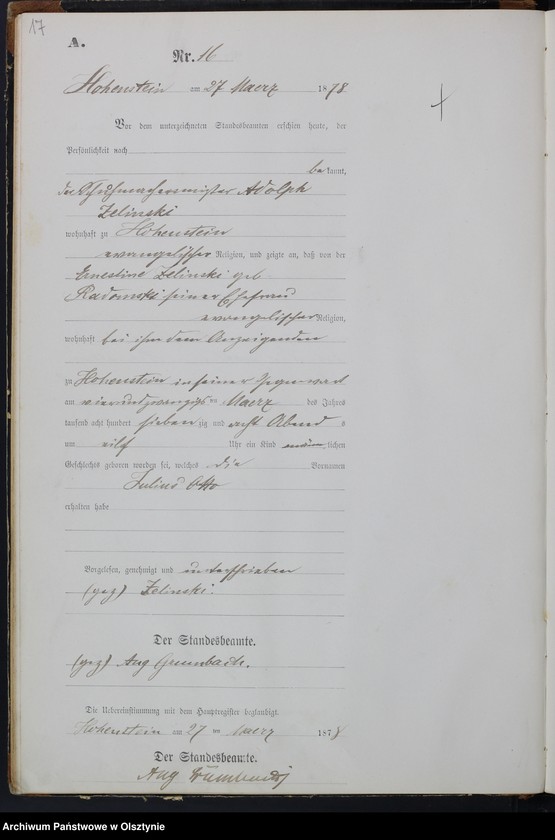 17
A.
Nr. 16
Hohenstein am 27 Maerz 1878
Vor dem unterzeichneten Standesbeamten erschien heute, der
Persönlichkeit nach
bekannt,
der Schuhmachermeister Adolph
Zelinski
wohnhaft zu Hohenstein
evangelischer Religion, und zeigte an, daß von der
Ernestine Zelinski geb
Radomski seiner Ehefrau
evangelischer Religion,
wohnhaft bei ihm dem Anzeigenden
zu Hohenstein in seiner Gegenwart
am vierundzwanzigsten Maerz des Jahres
tausend acht hundert siebenzig und acht Abends
um eilf Uhr ein Kind männlichen
Geschlechts geboren worden sei, welches die Vornamen
Julius Otto
erhalten habe
Vorgelesen, genehmigt und unterschrieben
(gez) Zelinski.
Der Standesbeamte.
(gez) Aug Grumbach.
Die Uebereinstimmung mit dem Hauptregister beglaubigt.
Hohenstein am 27 ten Maerz 1878
Der Standesbeamte.
Aug Grumbach
Archiwum Państwowe w Olsztynie